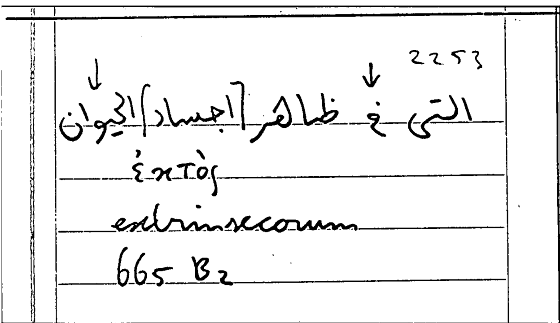 2253
التى فى ظاهر [اجساد] الحيوان
ἐκτὸς
extrinsecorum
665 B2